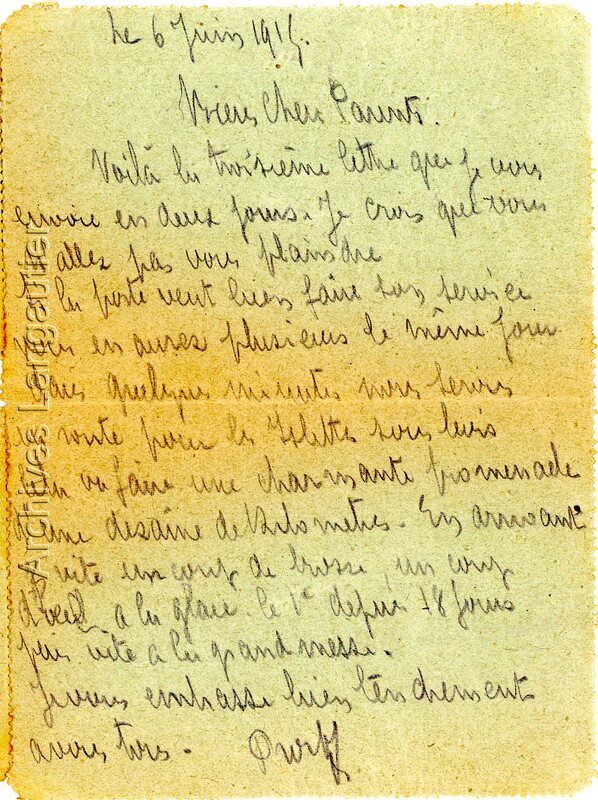 Le 6 Juin 1915.
Biens Chers Parents.
Voilà la troisième lettre que je vous
envoie en deux jours. Je crois que vous
allez pas vous plaindre
la poste veut bien faire son service
vous en aurez plusieurs le même jour
Dans quelques minutes nous serons
en route pour les Islettes sous bois
On va faire une charmante promenade
d'une desaine de kilometres. En arrivant
vite un coup de brosse, un coup
d'oeuil a la glace le 1er depuis 18 jours
puis vite a la grand messe.
Je vous embrasse bien tendrement
a vous tous.
Archives Largautier